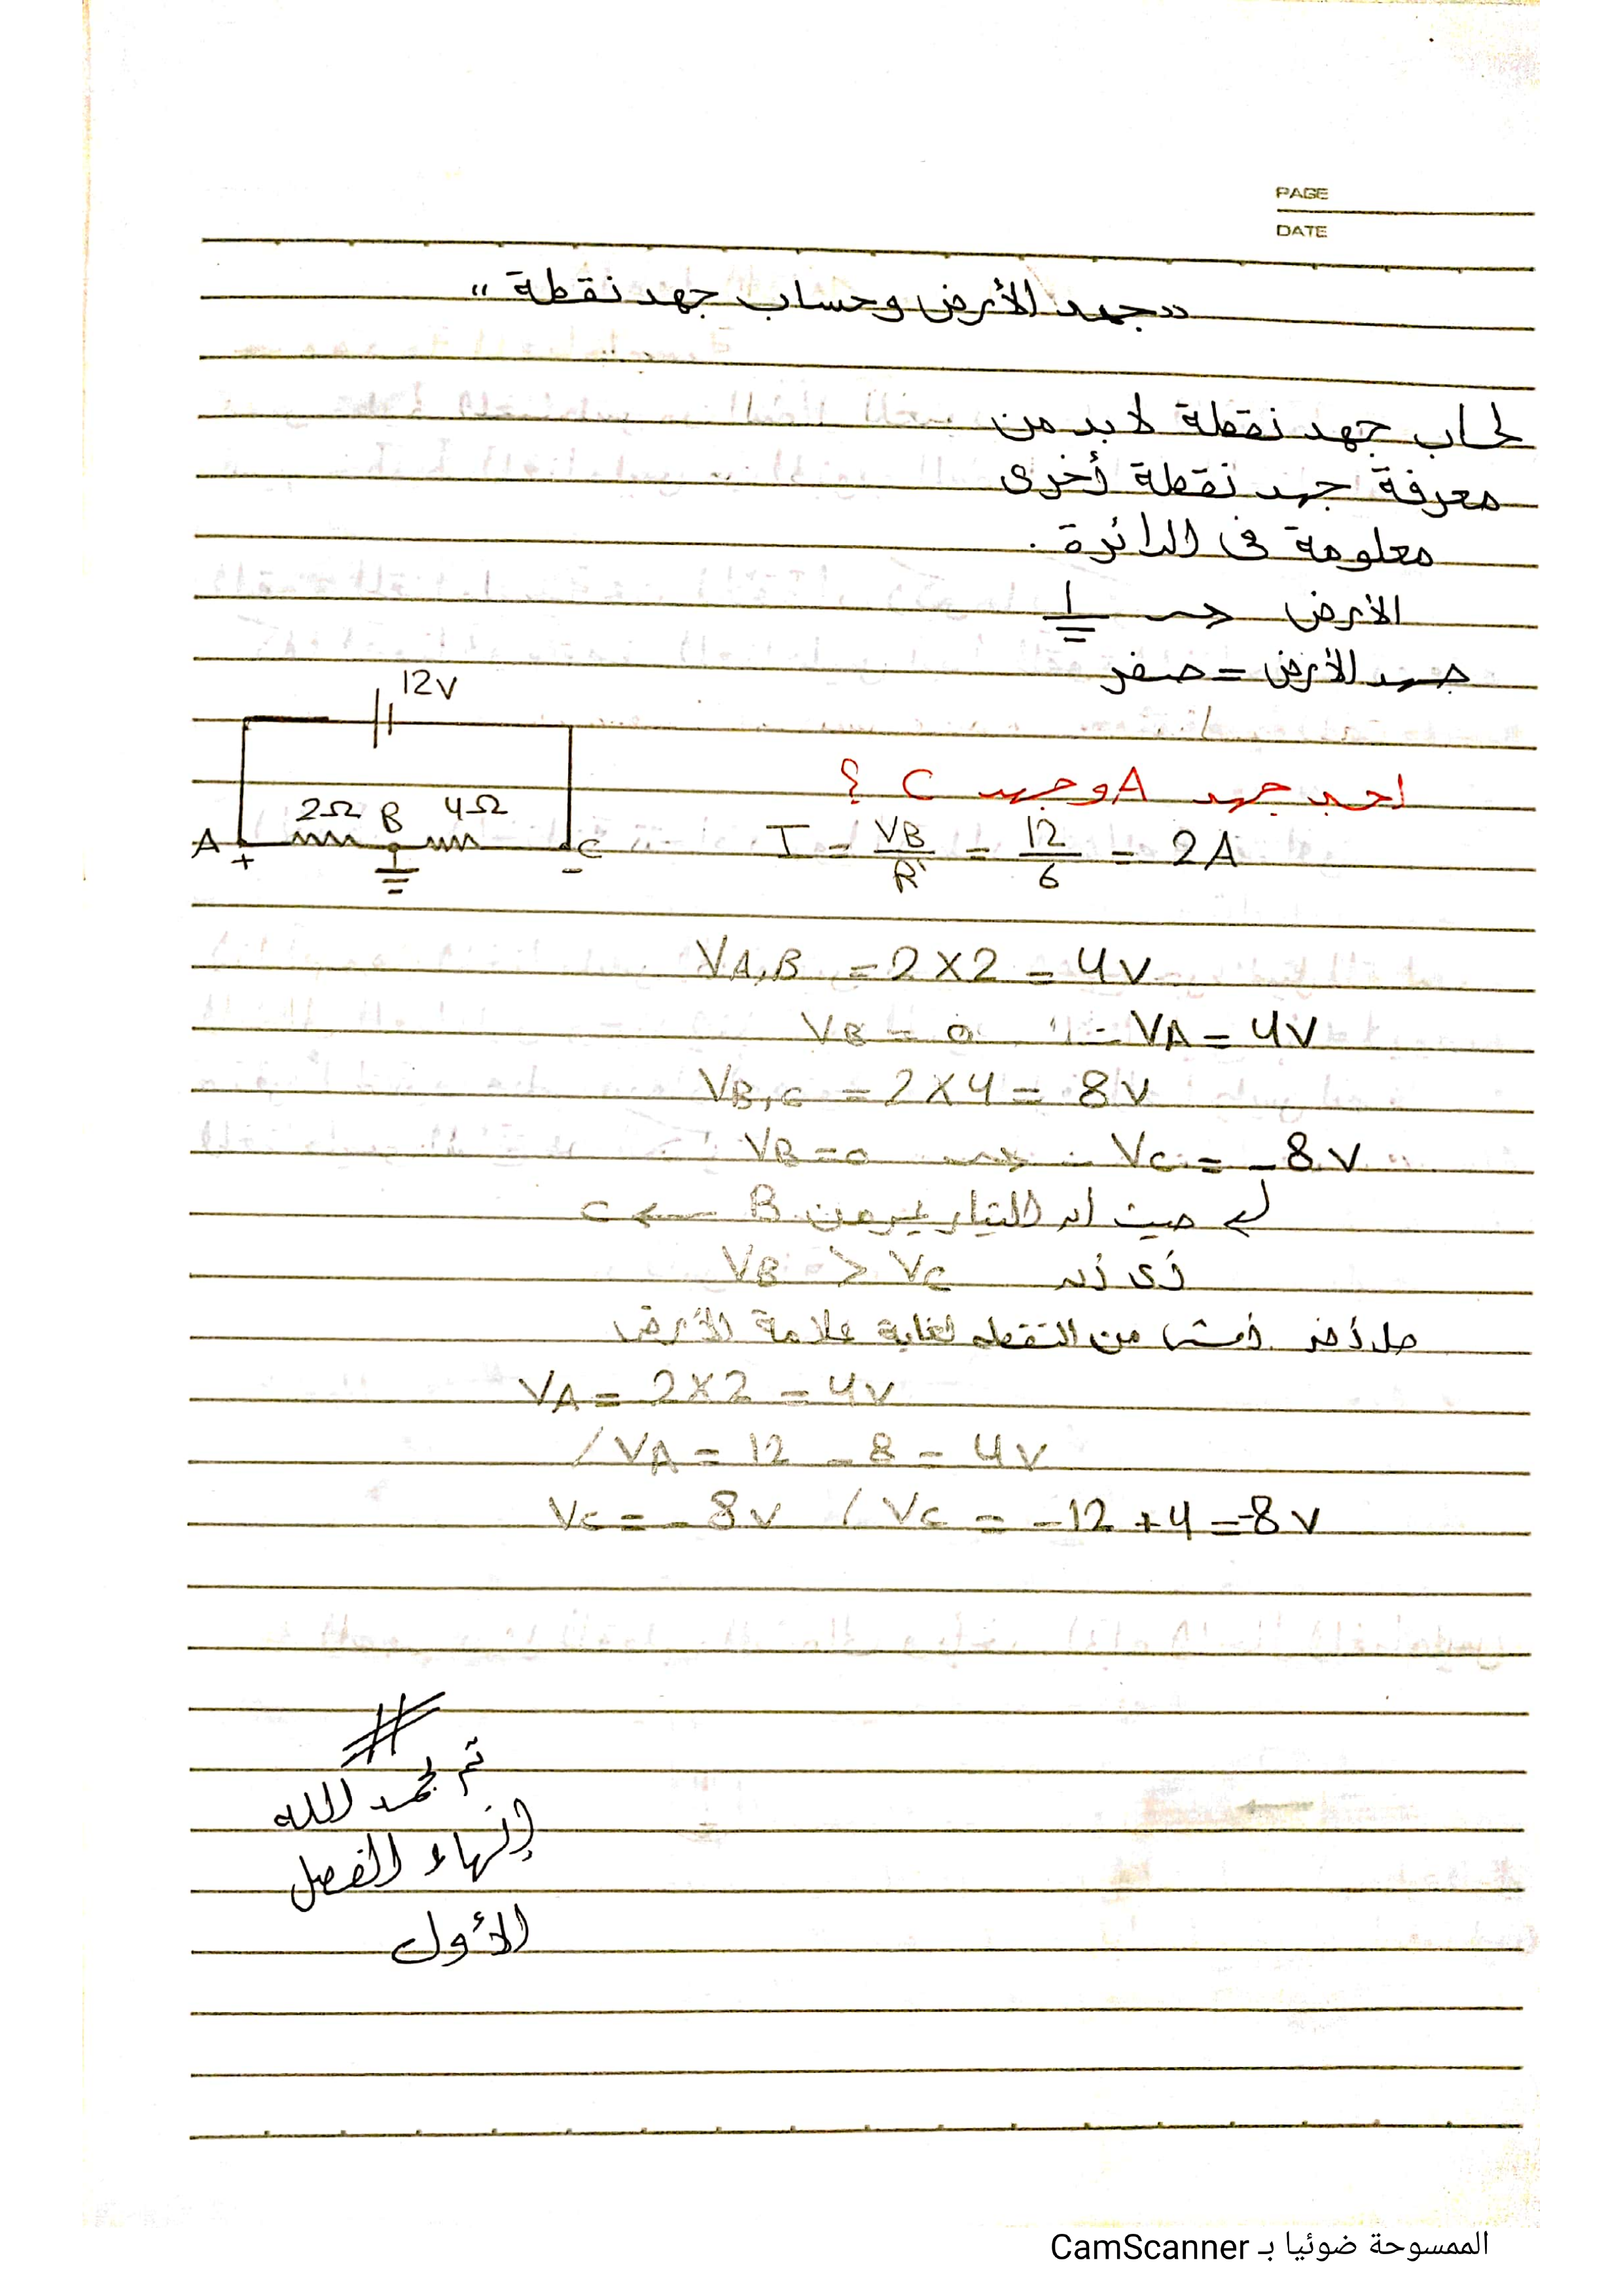 PAGE
DATE
"جهد الأرض وحساب جهد نقطة"
لحساب جهد نقطة لابد من
معرفة جهد نقطة أخرى
معلومة فى الدائرة .
الأرض
جهد الأرض = صفر
12V
2Ω B 4Ω
A + - C
احسب جهد A وجهد C ؟
I = VB / R' = 12 / 6 = 2A
VA,B = 2 × 2 = 4V
VB = 0 ∴ VA = 4V
VB,C = 2 × 4 = 8V
VB = 0 → ∴ VC = -8V
حيث أن التيار يمر من B ← C
أى أن VB > VC
حل أخر أمشى من النقطه لغاية علامة الأرض
VA = 2 × 2 = 4V
/ VA = 12 - 8 = 4V
VC = -8V / VC = -12 + 4 = -8V
تم بحمد الله
إنهاء الفصل
الأول
الممسوحة ضوئيا بـ CamScanner